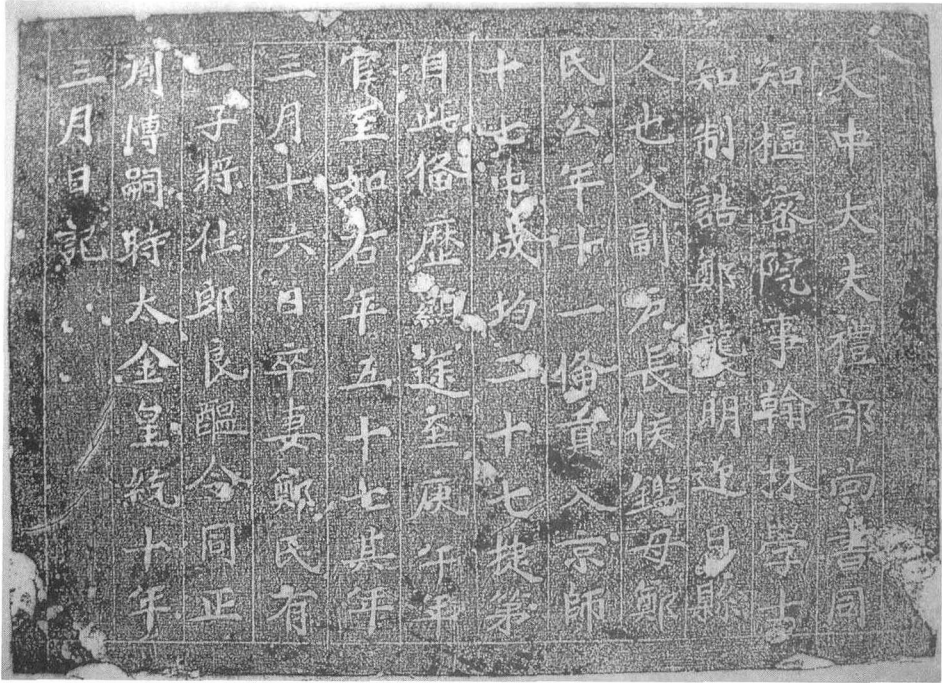 大中大夫禮部尚書同
知樞密院事翰林學士
知制誥鄭襲明迎日縣
人也父副戶長候鑑母鄭
氏公年十一備貢入京師
十七中成均二十七捷第
自此俻歷顯途至庚午年
官至如右年五十七其年
三月十六日卒妻鄭氏有
一子將仕郎良醞令同正
周愽嗣時大金皇統十年
三月日記